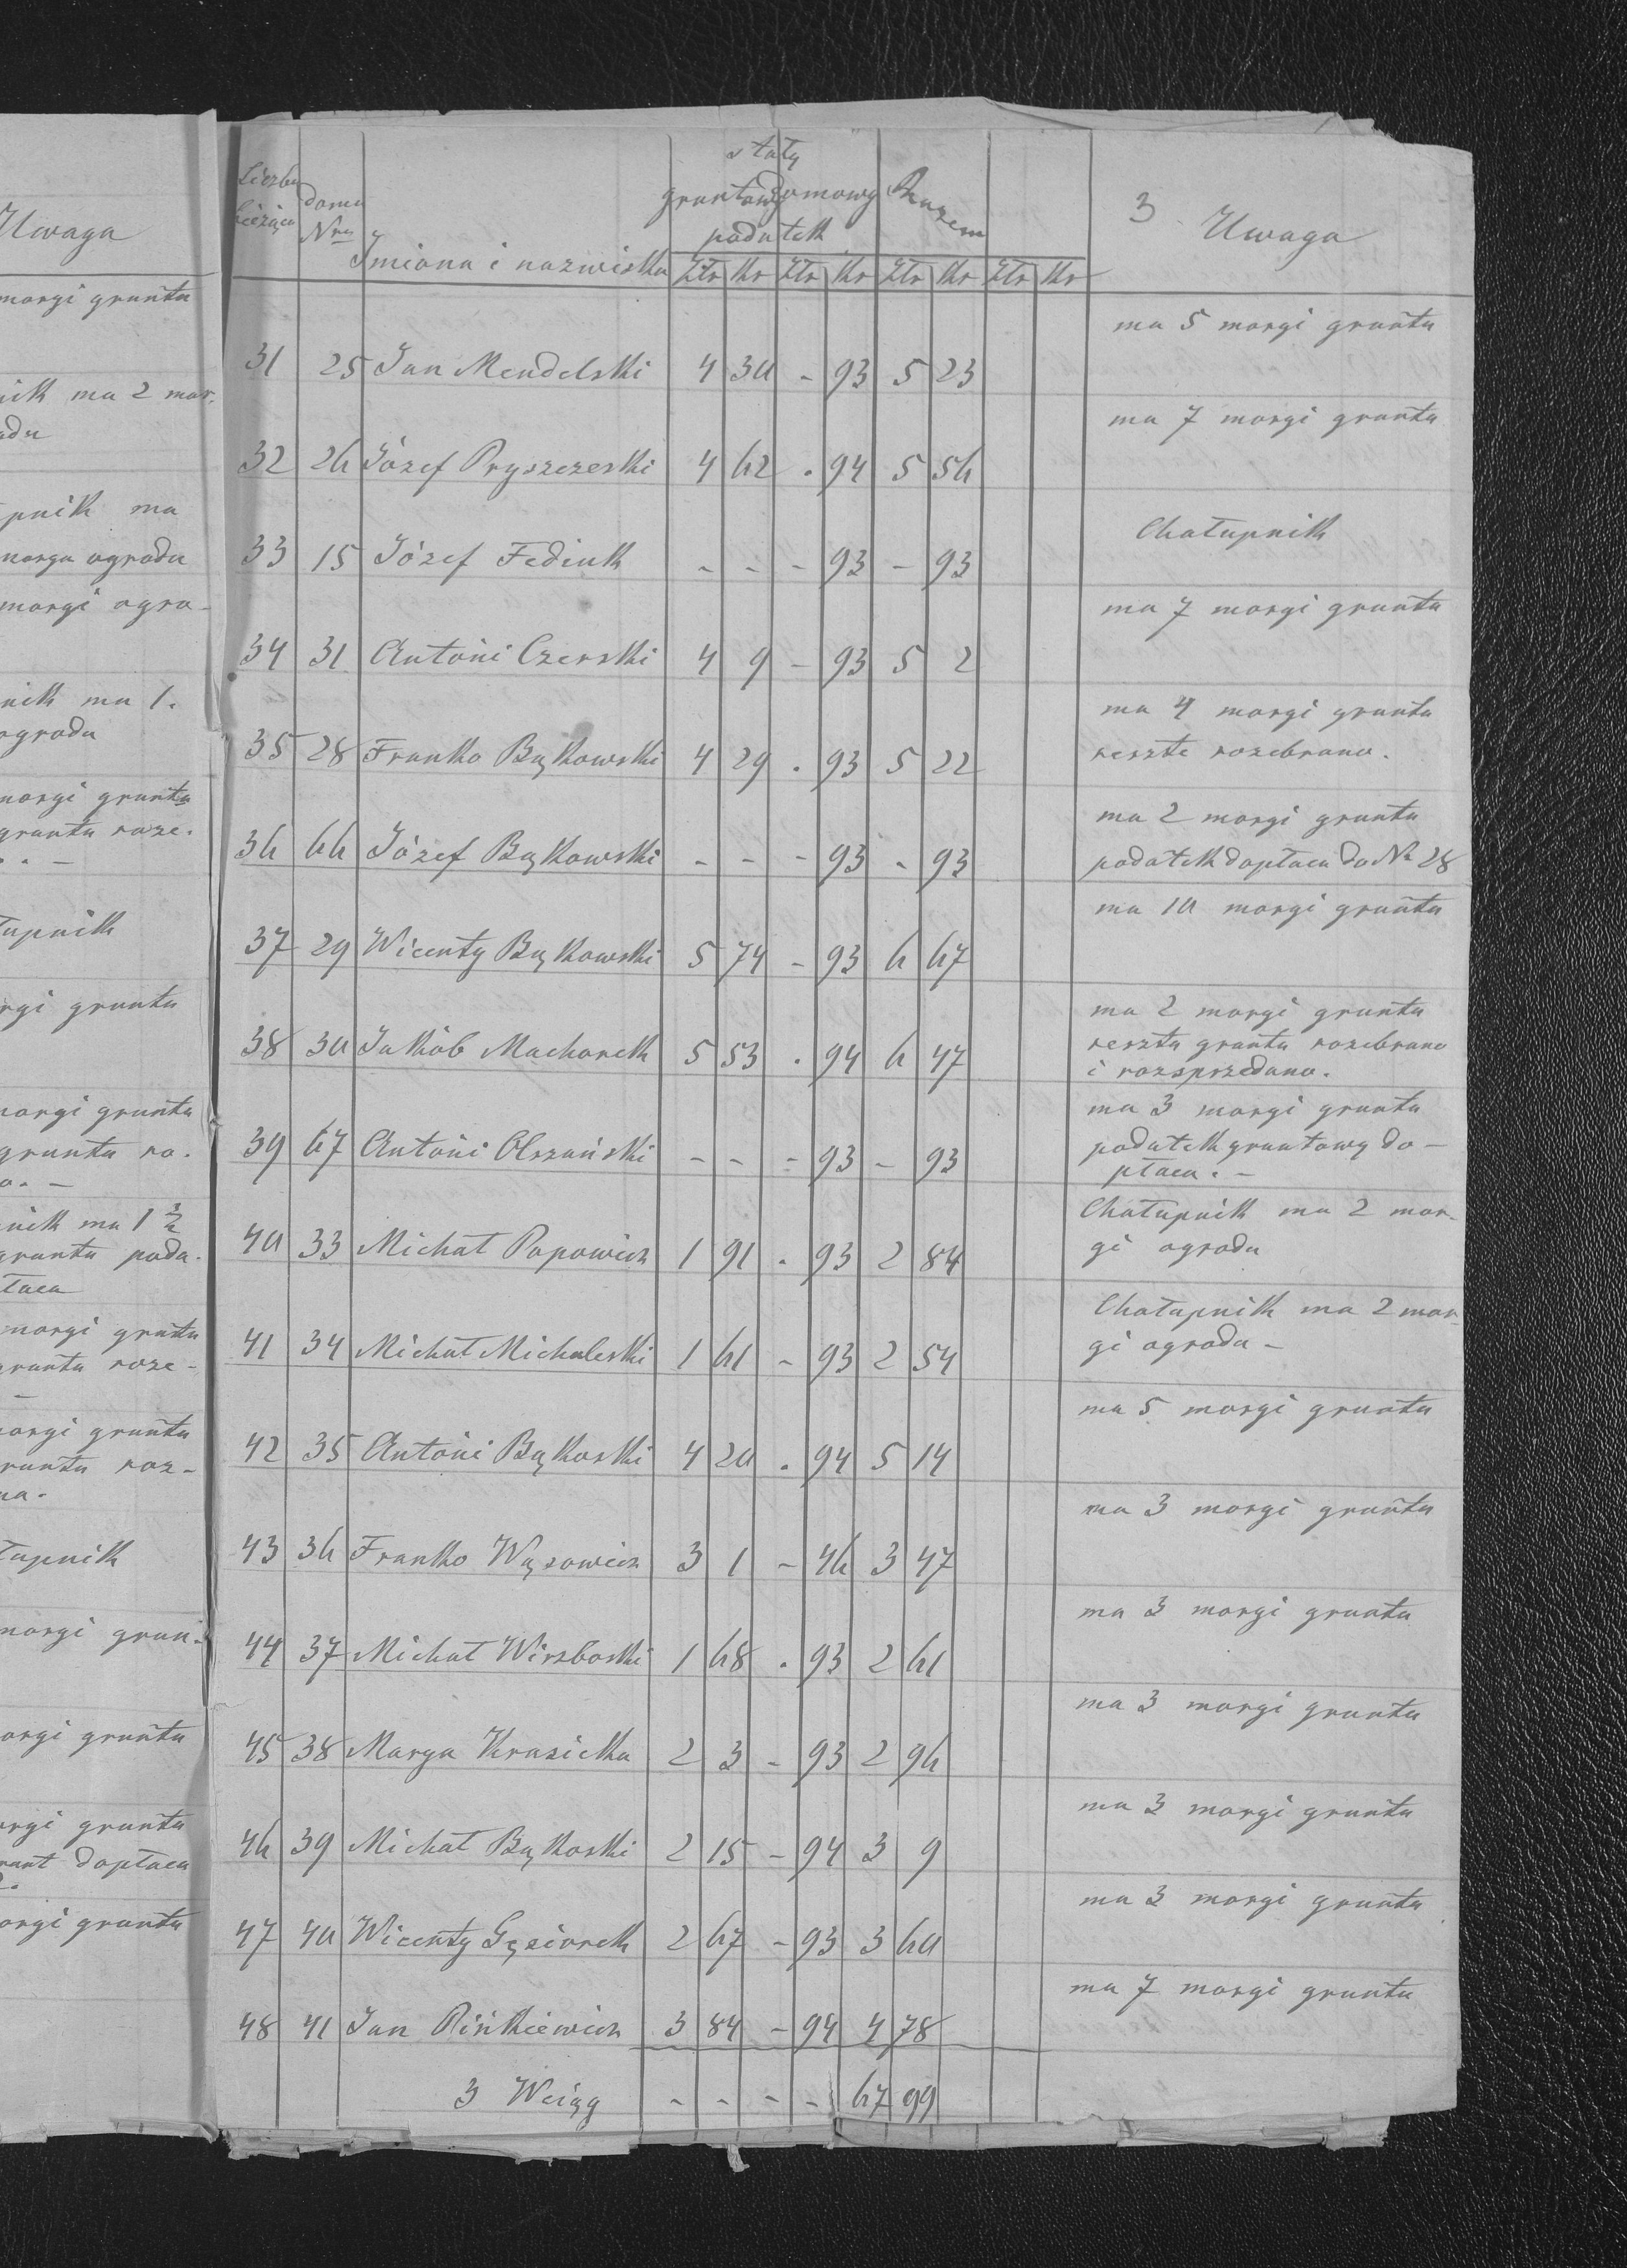 Uwaga
morgi gruntu
nik ma 2 mor.
adu
pnik ma
morga ogrodu
morgi ogro-
nik ma 1.
ogrodu
morgi gruntu
gruntu roze.
tupnik
rgi gruntu
morgi gruntu
gruntu ro.
nik ma 1
gruntu poda.
taca
morgi grutu
gruntu roze-
orgi gruntu
runtu roz-
na.
tupnik
morgi grun-
orgi gruntu
orgi gruntu
runt doptaca
orgi gruntu
3
Liczba bieżąca domu Nru Imiona i nazwiska stały gruntowy domowy podatek Razem Uwaga
Złr Kr Złr Kr Złr Kr Złr Kr
ma 5 morgi gruntu
31 25 Jan Mendelski 4 30 - 93 5 23
ma 7 morgi gruntu
32 26 Józef Pryszczeski 4 62 . 94 5 56
Chatupnik
33 15 Józef Fediuk - - - 93 - 93
ma 7 morgi gruntu
34 31 Antoni Czerski 4 9 - 93 5 2
ma 4 morgi gruntu
35 28 Franko Bąkowski 4 29 . 93 5 22 reszte rozebrano.
ma 2 morgi gruntu
36 66 Józef Bąkowski - - - 93 - 93 podatek doptaca do Nr 28
ma 10 morgi gruntu
37 29 Wicenty Bąkowski 5 74 - 93 6 67
ma 2 morgi gruntu
38 30 Jakób Machorek 5 53 . 94 6 47 reszta gruntu rozebrano
i rozsprzedano.
ma 3 morgi gruntu
39 67 Antoni Olszański - - - 93 - 93 podatek gruntowy do-
ptaca. -
Chatupnik ma 2 mor-
40 33 Michat Popowicz 1 91 . 93 2 84 gi ogrodu
Chatupnik ma 2 mor-
41 34 Michat Michaleski 1 61 - 93 2 54 gi ogrodu -
ma 5 morgi gruntu
42 35 Antoni Bąkoski 4 20 . 94 5 14
ma 3 morgi gruntu
43 36 Franko Wąsowicz 3 1 - 46 3 47
ma 3 morgi gruntu
44 37 Michat Wirzboski 1 68 . 93 2 61
ma 3 morgi gruntu
45 38 Marya Krasicka 2 3 - 93 2 96
ma 3 morgi gruntu
46 39 Michat Bąkoski 2 15 - 94 3 9
ma 3 morgi gruntu
47 40 Wicenty Gąsiorek 2 67 - 93 3 60
ma 7 morgi gruntu
48 41 Jan Pińkiewicz 3 84 - 94 4 78
3 Weiąg - - - - 67 99